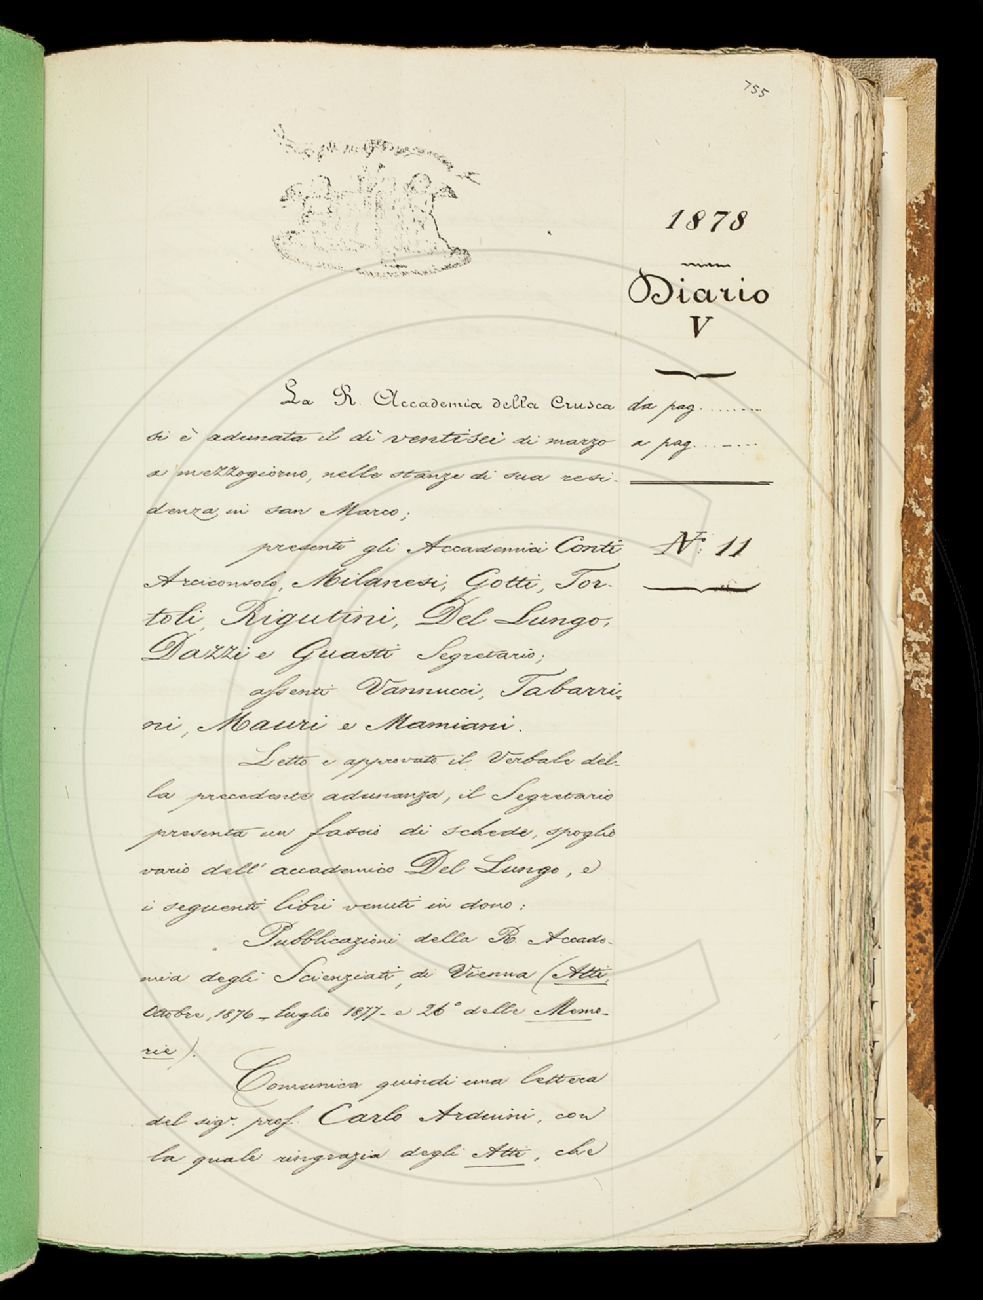 755
1878
Diario
V
da pag.........
a pag.........
N.° 11
La R. Accademia della Crusca
si è adunata il dì ventisei di marzo
a mezzogiorno, nelle stanze di sua resi-
denza in san Marco;
presenti gli Accademici Conti
Arciconsolo, Milanesi, Gotti, Tor-
toli, Rigutini, Del Lungo,
Dazzi e Guasti Segretario;
assenti Vannucci, Tabarri-
ni, Mauri e Mamiani.
Letto e approvato il Verbale del-
la precedente adunanza, il Segretario
presenta un fascio di schede, spoglio
vario dell'accademico Del Lungo, e
i seguenti libri venuti in dono:
Pubblicazioni della R. Accade-
mia degli Scienziati, di Vienna (Atti,
Ottobre, 1876 - luglio 1877 - e 26° delle Memo-
rie).
Comunica quindi una lettera
del sig.r prof. Carlo Arduini, con
la quale ringrazia degli Atti, che